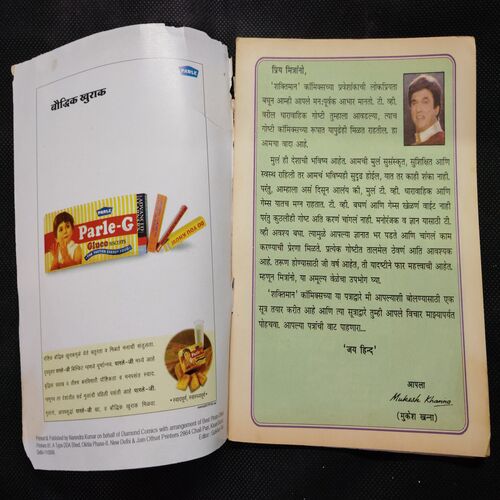 PARLE
बौद्धिक खुराक
PARLE
Parle-G
Gluco BISCUITS
स्वादपूर्ण, स्वास्थ्यपूर्ण
Printed & Published by Narendra Kumar on behalf of Diamond Comics with arrangement of Best
Printers 91, A Type DDA Shed, Okhla Phase-II, New Delhi & Jain Offset Printers 2964
Delhi-110006
प्रिय मित्रांनो,
'शक्तिमान' कॉमिक्सच्या प्रवेशांकाची लोकप्रियता
बघून आम्ही आपले मनःपूर्वक आभार मानतो. टी. व्ही.
वरील धारावाहिक गोष्टी तुम्हाला आवडल्या, त्याच
गोष्टी कॉमिक्सच्या रूपात यापुढेही मिळत राहतील. हा
आमचा वादा आहे.
मुलं ही देशाची भविष्य आहेत. आमची मुलं सुसंस्कृत, सुशिक्षित आणि
स्वस्थ राहिलो तर आमचं भविष्यही सुदृढ होईल, यात तर काही शंका नाही.
परंतु, आम्हाला असं दिसून आलंय की, मुलं टी. व्ही. धारावाहिक आणि
गेम्स यातच मग्न राहतात. टी. व्ही. बघणं आणि गेम्स खेळणं वाईट नाही
परंतु कुठलीही गोष्ट अति करणं चांगलं नाही. मनोरंजक व ज्ञान यासाठी टी.
व्ही अवश्य बघा. त्यामुळे आपल्या ज्ञानात भर पडते आणि चांगलं काम
करण्याची प्रेरणा मिळते. प्रत्येक गोष्टीत तालमेळ ठेवणं आति आवश्यक
आहे. तरूण होण्यासाठी जी वर्ष आहेत, ती यादृष्टीने फार महत्त्वाची आहेत.
म्हणून मित्रांनो, या अमूल्य वेळेचा उपभोग घ्या.
'शक्तिमान' कॉमिक्सच्या या पत्राद्वारे मी आपल्याशी बोलण्यासाठी एक
सूत्र तयार करीत आहे आणि त्या सूत्राद्वारे तुम्ही आपले विचार माझ्यापर्यंत
पोहचवा. आपल्या पत्रांची वाट पाहणारा..
'जय हिन्द'
आपला
Mukesh Khanna
(मुकेश खन्ना)